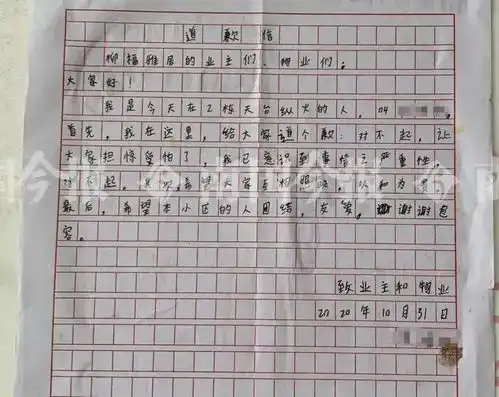 道歉信
柳福雅居的业主们、物业们：
大家好！
我是今天在2栋天台纵火的人，04
首先，我在这里，给大家道个歉：对不起，让
大家担惊受怕了，我已意识到事情之严重性，
对不起，其次，希望大家互相照顾，以和为贵，
最后，希望本小区的人团结，友善，谢谢谢包
容。
致业主和物业
2020年10月31日